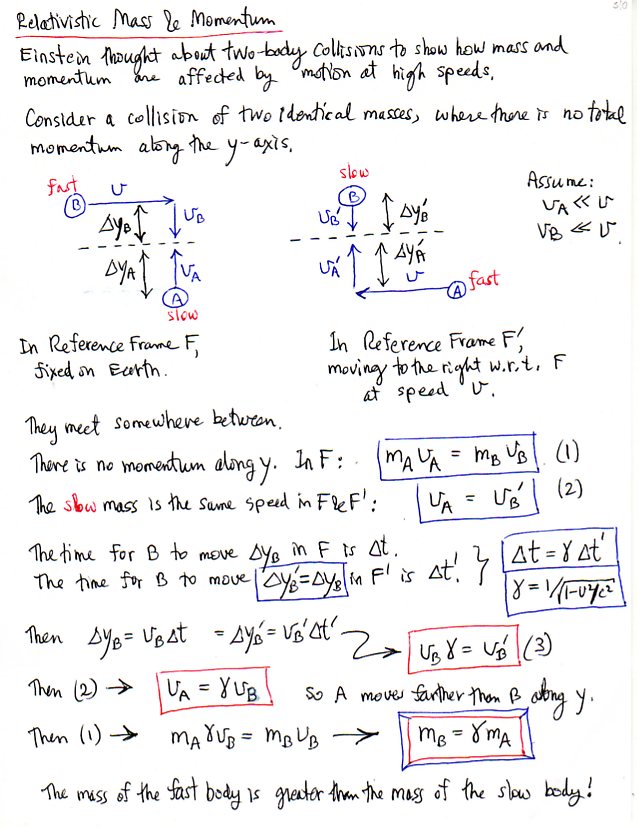 Relativistic Mass & Momentum
Einstein thought about two-body collisions to show how mass and
momentum are affected by motion at high speeds.
Consider a collision of two identical masses, where there is no total
momentum along the y-axis.
fast
B
v
ΔyB
vB
ΔyA
vA
A
slow
slow
B
vB′
ΔyB′
vA′
ΔyA′
v
A
fast
Assume:
vA << v
vB << v.
In Reference Frame F,
fixed on Earth.
In Reference Frame F′,
moving to the right w.r.t. F
at speed v.
They meet somewhere between.
There is no momentum along y. In F: mA vA = mB vB (1)
The slow mass is the same speed in F & F′: vA = vB′ (2)
The time for B to move ΔyB in F is Δt.
The time for B to move ΔyB′ = ΔyB in F′ is Δt′. } Δt = γ Δt′
γ = 1/√(1-v²/c²)
Then ΔyB = vB Δt = ΔyB′ = vB′ Δt′ → vB γ = vB′ (3)
Then (2) → vA = γ vB so A moves farther than B along y.
Then (1) → mA γ vB = mB vB → mB = γ mA
The mass of the fast body is greater than the mass of the slow body!